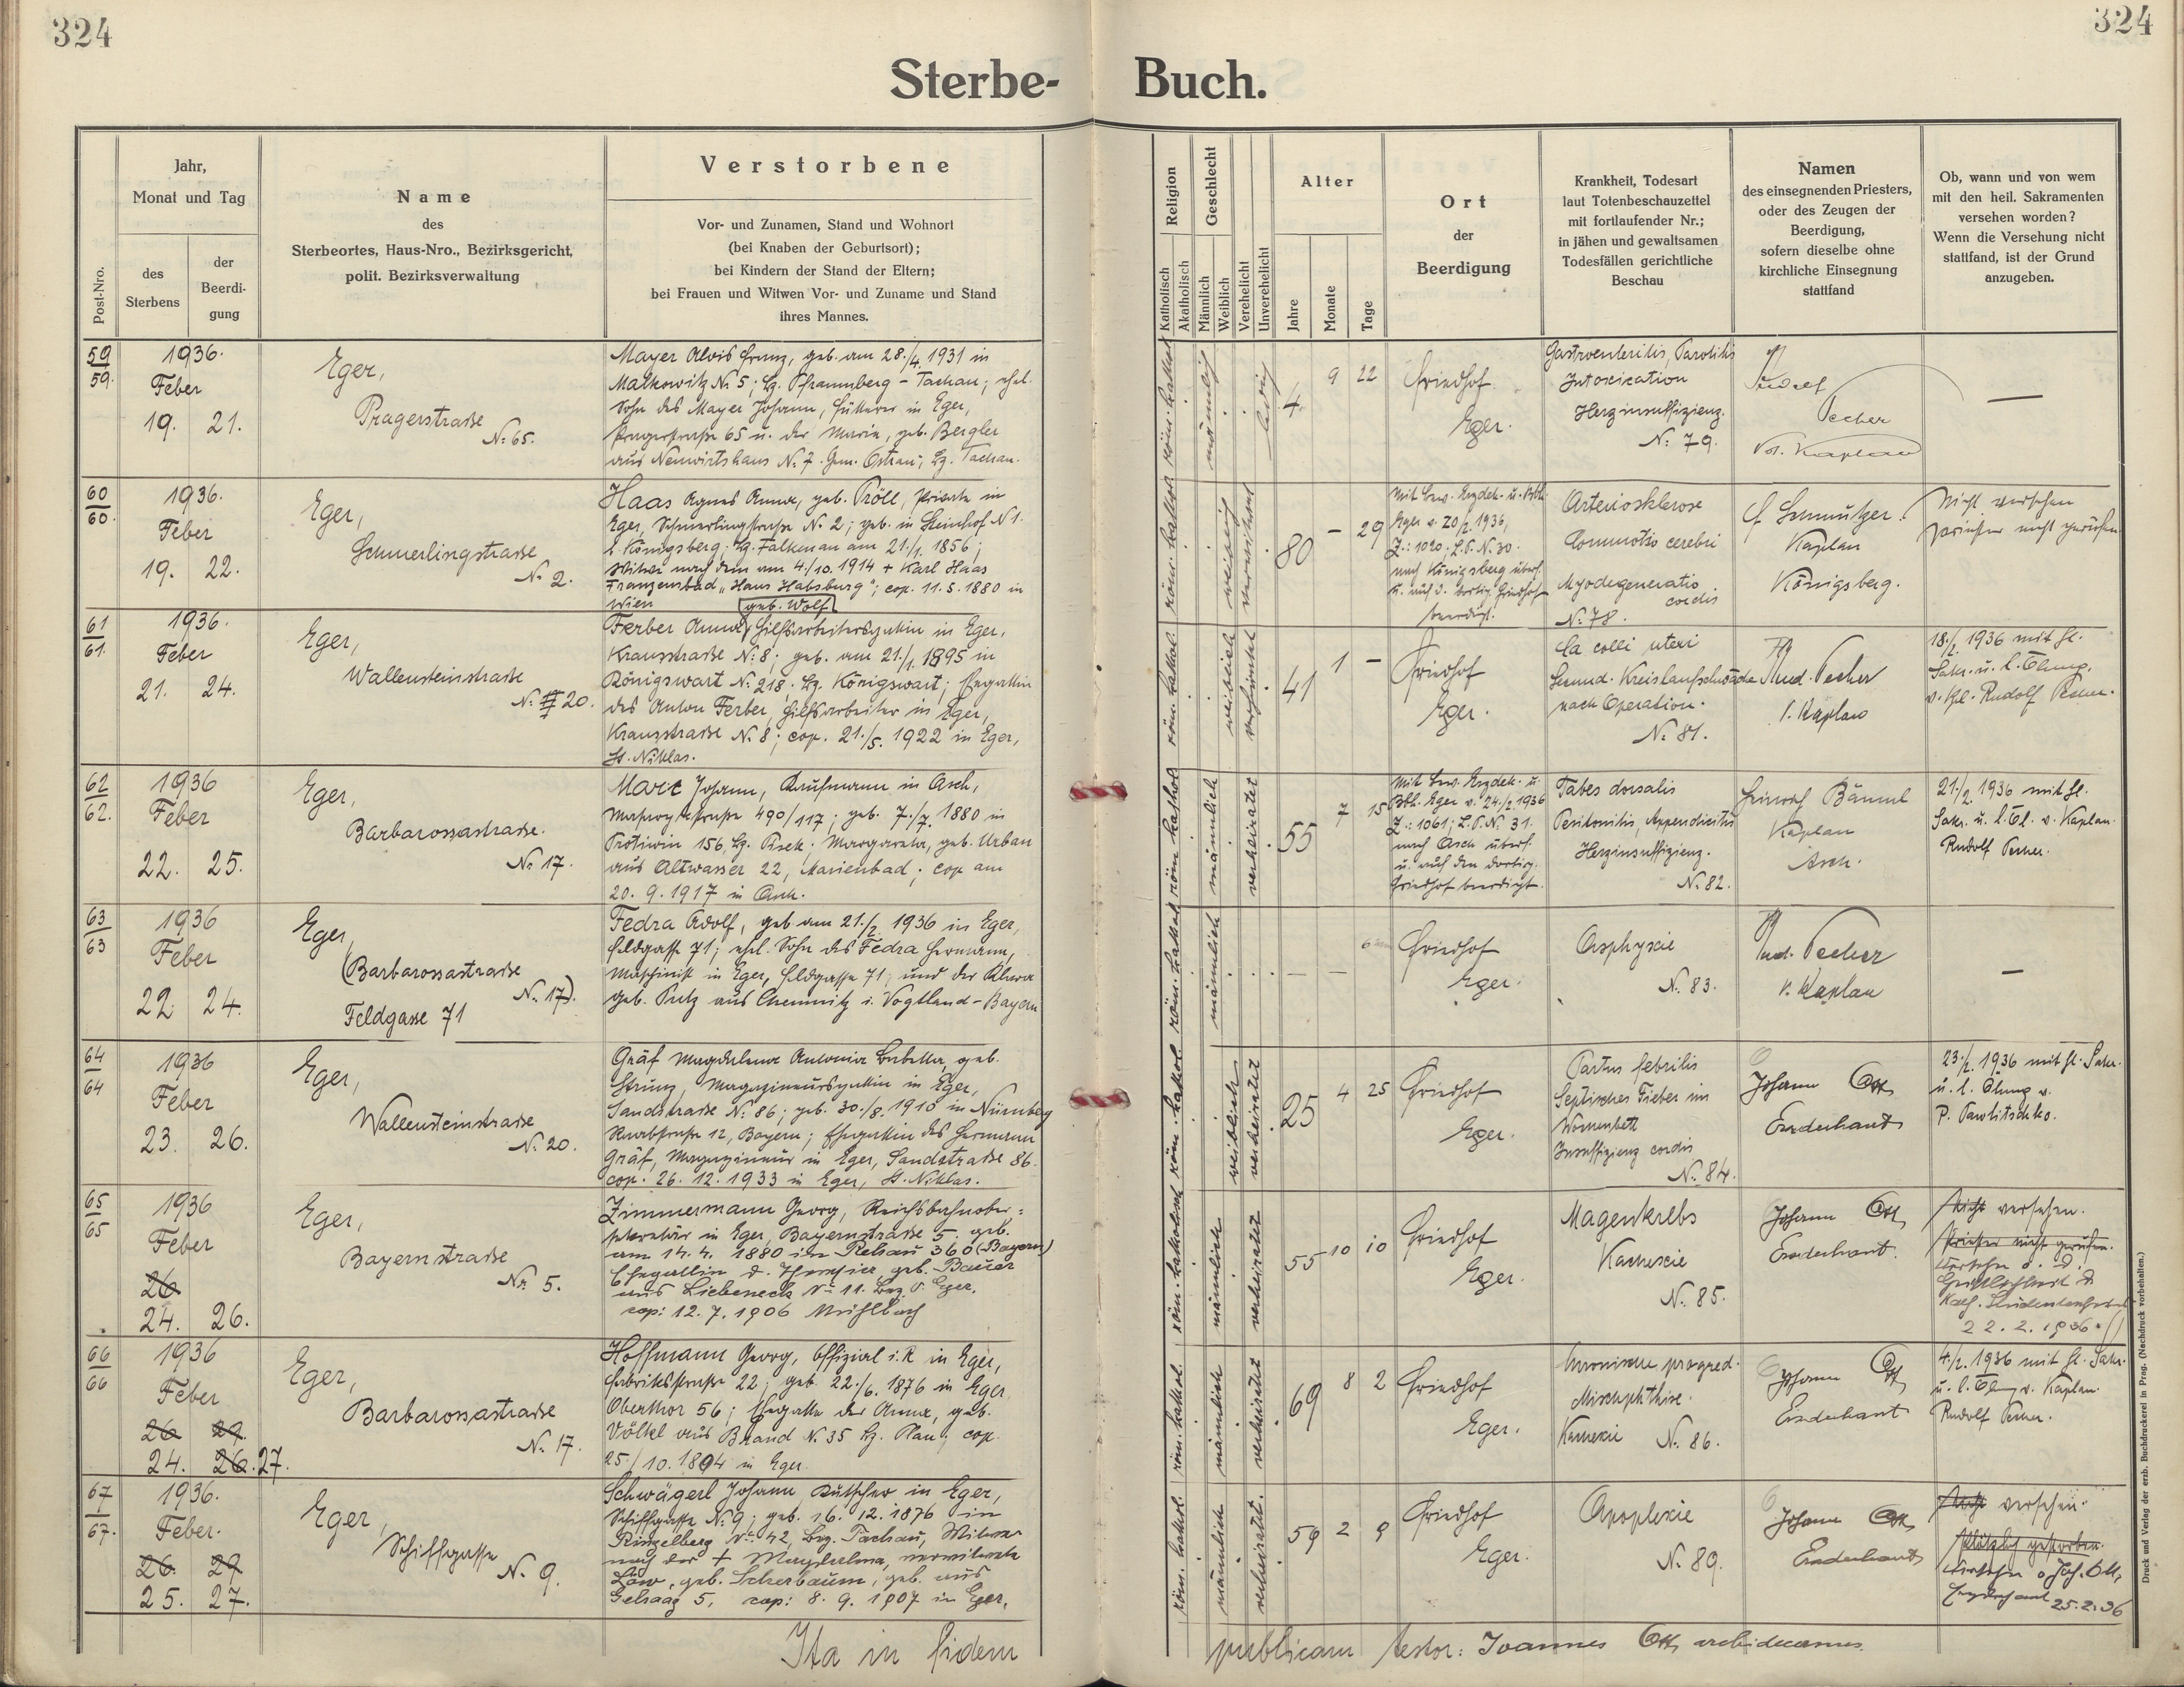 324
324
Sterbe-
Buch.
Post-Nro.
Jahr,
Monat und Tag
des
Sterbens
der
Beerdi-
gung
Name
des
Sterbeortes, Haus-Nro., Bezirksgericht,
polit. Bezirksverwaltung
Verstorbene
Vor- und Zunamen, Stand und Wohnort
(bei Knaben der Geburtsort);
bei Kindern der Stand der Eltern;
bei Frauen und Witwen Vor- und Zuname und Stand
ihres Mannes.
Religion
Katholisch
Akatholisch
Geschlecht
Männlich
Weiblich
Verehelicht
Unverehelicht
Alter
Jahre
Monate
Tage
Ort
der
Beerdigung
Krankheit, Todesart
laut Totenbeschauzettel
mit fortlaufender Nr.;
in jähen und gewaltsamen
Todesfällen gerichtliche
Beschau
Namen
des einsegnenden Priesters,
oder des Zeugen der
Beerdigung,
sofern dieselbe ohne
kirchliche Einsegnung
stattfand
Ob, wann und von wem
mit den heil. Sakramenten
versehen worden?
Wenn die Versehung nicht
stattfand, ist der Grund
anzugeben.
59
59.
1936.
Feber
19. 21.
Eger,
Pragerstraße
N: 65.
Mayer Alois Franz, geb. am 28./4. 1931 in
Malkowitz N: 5; Bz. Pfraumberg - Tachau; ehel.
Sohn des Mayer Johann, in Eger,
Pragerstraße 65 u. der Maria, geb. Bergler
aus Neuwirtshaus N: 7. Gem. Ostrau; Bz. Tachau.
röm. kathol.
männlich
ledig
4. 9 22
Friedhof
Eger.
Gastroenteritis, Parotitis
Intoxication
Herzinsuffizienz.
N: 79.
Rudolf
Pecher
Kaplan
—
60
60.
1936.
Feber
19. 22.
Eger,
Schmerlingstrasse
N: 2.
Haas Agnes Anna, geb. Pröll, Private in
Eger, Schmerlingstraße N: 2; geb. in Steinhof N 1.
b. Königsberg; Bz. Falkenau am 21./1. 1856;
Witwe nach dem am 4./10. 1914 + Karl Haas
Franzensbad „Haus Habsburg"; cop. 11. 5. 1880 in
Wien
röm. kathol.
weiblich
verwitwet
80 – 29
Mit Bew. Erzdek. u. Bbh.
Eger v. 20/2. 1936,
Z.: 1020; L.P. N. 30.
nach Königsberg überf.
u. auf d. dortig. Friedhof
beerdigt.
Arteriosklerose
Commotio cerebri
Myodegeneratio
cordis
N: 78.
Kaplan
Königsberg.
Nicht versehen
Priester nicht gerufen
61
61.
1936.
Feber
21. 24.
Eger,
Wallensteinstrasse
N: 20.
geb. Wolf
Ferber Anna, Hilfsarbeitersgattin in Eger,
Kransstraße N: 8; geb. am 21./1. 1895 in
Königswart N: 218. Bz. Königswart; Ehegattin
des Anton Ferber, Hilfsarbeiter in Eger,
Kransstraße N: 8; cop. 21./5. 1922 in Eger,
St. Niklas.
röm. kathol.
weiblich
verheiratet
41 1 –
Friedhof
Eger.
Ca colli uteri
Sekund. Kreislaufschwäche
nach Operation.
N: 81.
Rud. Pecher
Kaplan
18./2. 1936 mit hl.
Sakr. u. l. Ölung.
v. Kpl. Rudolf Pecher.
62
62.
1936
Feber
22. 25.
Eger,
Barbarossastrasse.
N: 17.
Johann, Kaufmann in Asch,
490/117; geb. 7./7. 1880 in
Protiwin 156, Bz. Pisek; Margareta, geb. Urban
aus Altwasser 22, Marienbad; cop am
20. 9. 1917 in Asch.
röm. kathol.
männlich
verheiratet
55 7 15
Mit Bew. Erzdek. u
Bbh. Eger v. 24./2 1936
Z.: 1061; L.P. N. 31.
nach Asch überf.
u. auf den dortig.
Friedhof beerdigt.
Tabes dorsalis
Peritonitis, Appendicitis
Herzinsuffizienz.
N: 82.
Kaplan
Asch.
21./2. 1936 mit hl.
Sakr. u. l. Öl. v. Kaplan
Rudolf Pecher.
63
63
1936
Feber
22 24.
Eger
(Barbarossastrasse
N: 17).
Feldgasse 71
Fedra Adolf, geb am 21./2. 1936 in Eger,
Feldgasse 71; ehel. Sohn des Fedra Hermann,
Maschinist in Eger, Feldgasse 71; und der Klara
geb. Putz aus Chemnitz i. Vogtland - Bayern
röm. kathol.
männlich
— — 6
Friedhof
Eger.
Asphyxie
N: 83.
Rud. Pecher
Kaplan
—
64
64
1936
Feber
23. 26.
Eger,
Wallensteinstrasse
N: 20.
Gräf Magdalena Antonia Babetta, geb.
Strunz, Magazineursgattin in Eger,
Sandstrasse N: 86; geb. 30./8. 1910 in Nürnberg
12, Bayern; Ehegattin des Hermann
Gräf, Magazineur in Eger, Sandstrasse 86.
cop. 26. 12. 1933 in Eger, St. Niklas.
röm. kathol.
weiblich
verheiratet
25 4 25
Friedhof
Eger.
Partus febrilis
Septisches Fieber im
Wochenbett
Insuffizienz cordis
N: 84.
Johann Ott
Erzdechant
23./2. 1936 mit hl. Sakr.
u. l. Ölung v.
P. Pawlitschko.
65
65
1936
Feber
26
24. 26.
Eger,
Bayernstrasse
Nr. 5.
Zimmermann Georg, Reichsbahnober-
sekretär in Eger, Bayernstrasse 5. geb.
am 14. 4. 1880 in Rehau 360 (Bayern)
Ehegattin d. geb. Bauer
aus Liebeneck N: 11. Bez. Eger.
cop: 12. 7. 1906 Mühlbach
röm. katholisch
männlich
verheiratet
55 10 10
Friedhof
Eger.
Magenkrebs
Kachexie
N: 85.
Johann Ott
Erzdechant.
Nicht versehen.
Priester nicht gerufen.
22. 2. 1936.
66
66
1936
Feber
26 29.
24. 26. 27.
Eger,
Barbarossastrasse
N: 17.
Hoffmann Georg, Offizial i. R in Eger,
Fabriksstraße 22; geb. 22./6. 1876 in Eger
Oberthor 56; Ehegatte der Anna, geb.
Völkel aus Brand N: 35 Bz. Plan; cop.
25./10. 1894 in Eger.
röm. kathol.
männlich
verheiratet
69 8 2
Friedhof
Eger.
Chronische progred.
Kachexie N: 86.
Johann Ott
Erzdechant
4./2. 1936 mit hl. Sakr.
u. l. Ölung v. Kaplan
Rudolf Pecher.
67
67.
1936.
Feber.
26. 29
25. 27.
Eger,
Schiffgasse
N: 9.
Schwägerl Johann Kutscher in Eger,
Schiffgasse N: 9; geb. 16. 12. 1876 in
Ringelberg N: 42, Bez. Tachau, Witwer
nach der + Magdalena, verwitwete
Löw, geb. Scherbaum, geb. aus
5, cop: 8. 9. 1907 in Eger.
röm. kathol.
männlich
verheiratet.
59 2 9
Friedhof
Eger.
Apoplexie
N: 89.
Johann Ott
Erzdechant
Nicht versehen.
Plötzlich gestorben.
versehen v. Joh. Ott,
Erzdechant 25.2.36
Ita in fidem
publicam testor: Joannes Ott archidecanus.
Druck und Verlag der erzb. Buchdruckerei in Prag. (Nachdruck vorbehalten.)